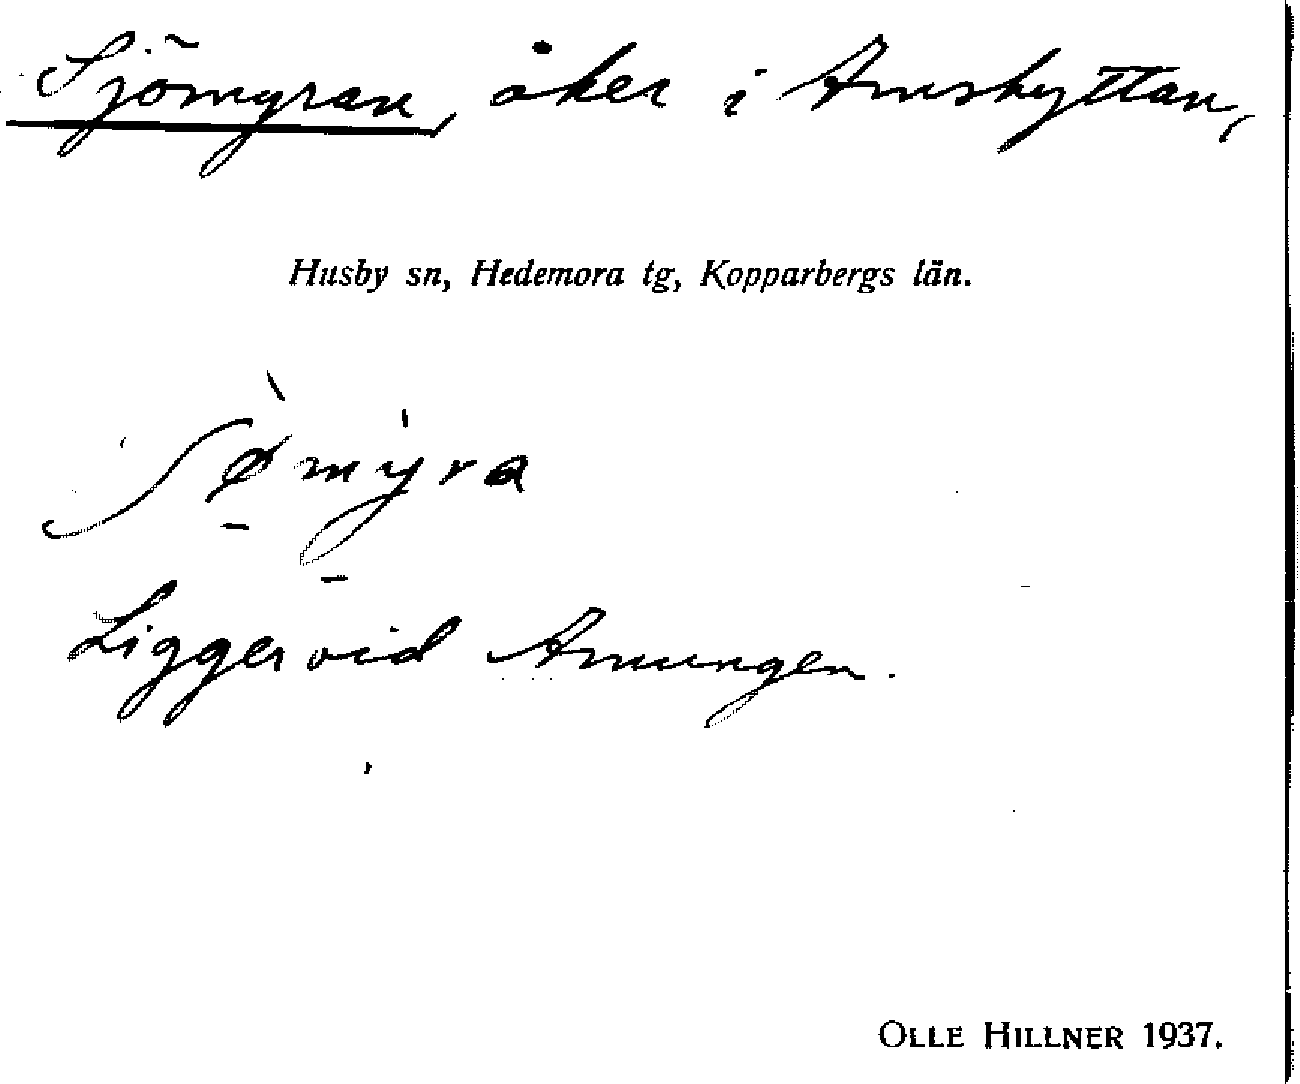 Sjömyran, åker i Amshyttan,
Husby sn, Hedemora tg, Kopparbergs län.
ʃø̀mýra
Ligger vid Amungen.
OLLE HILLNER 1937.